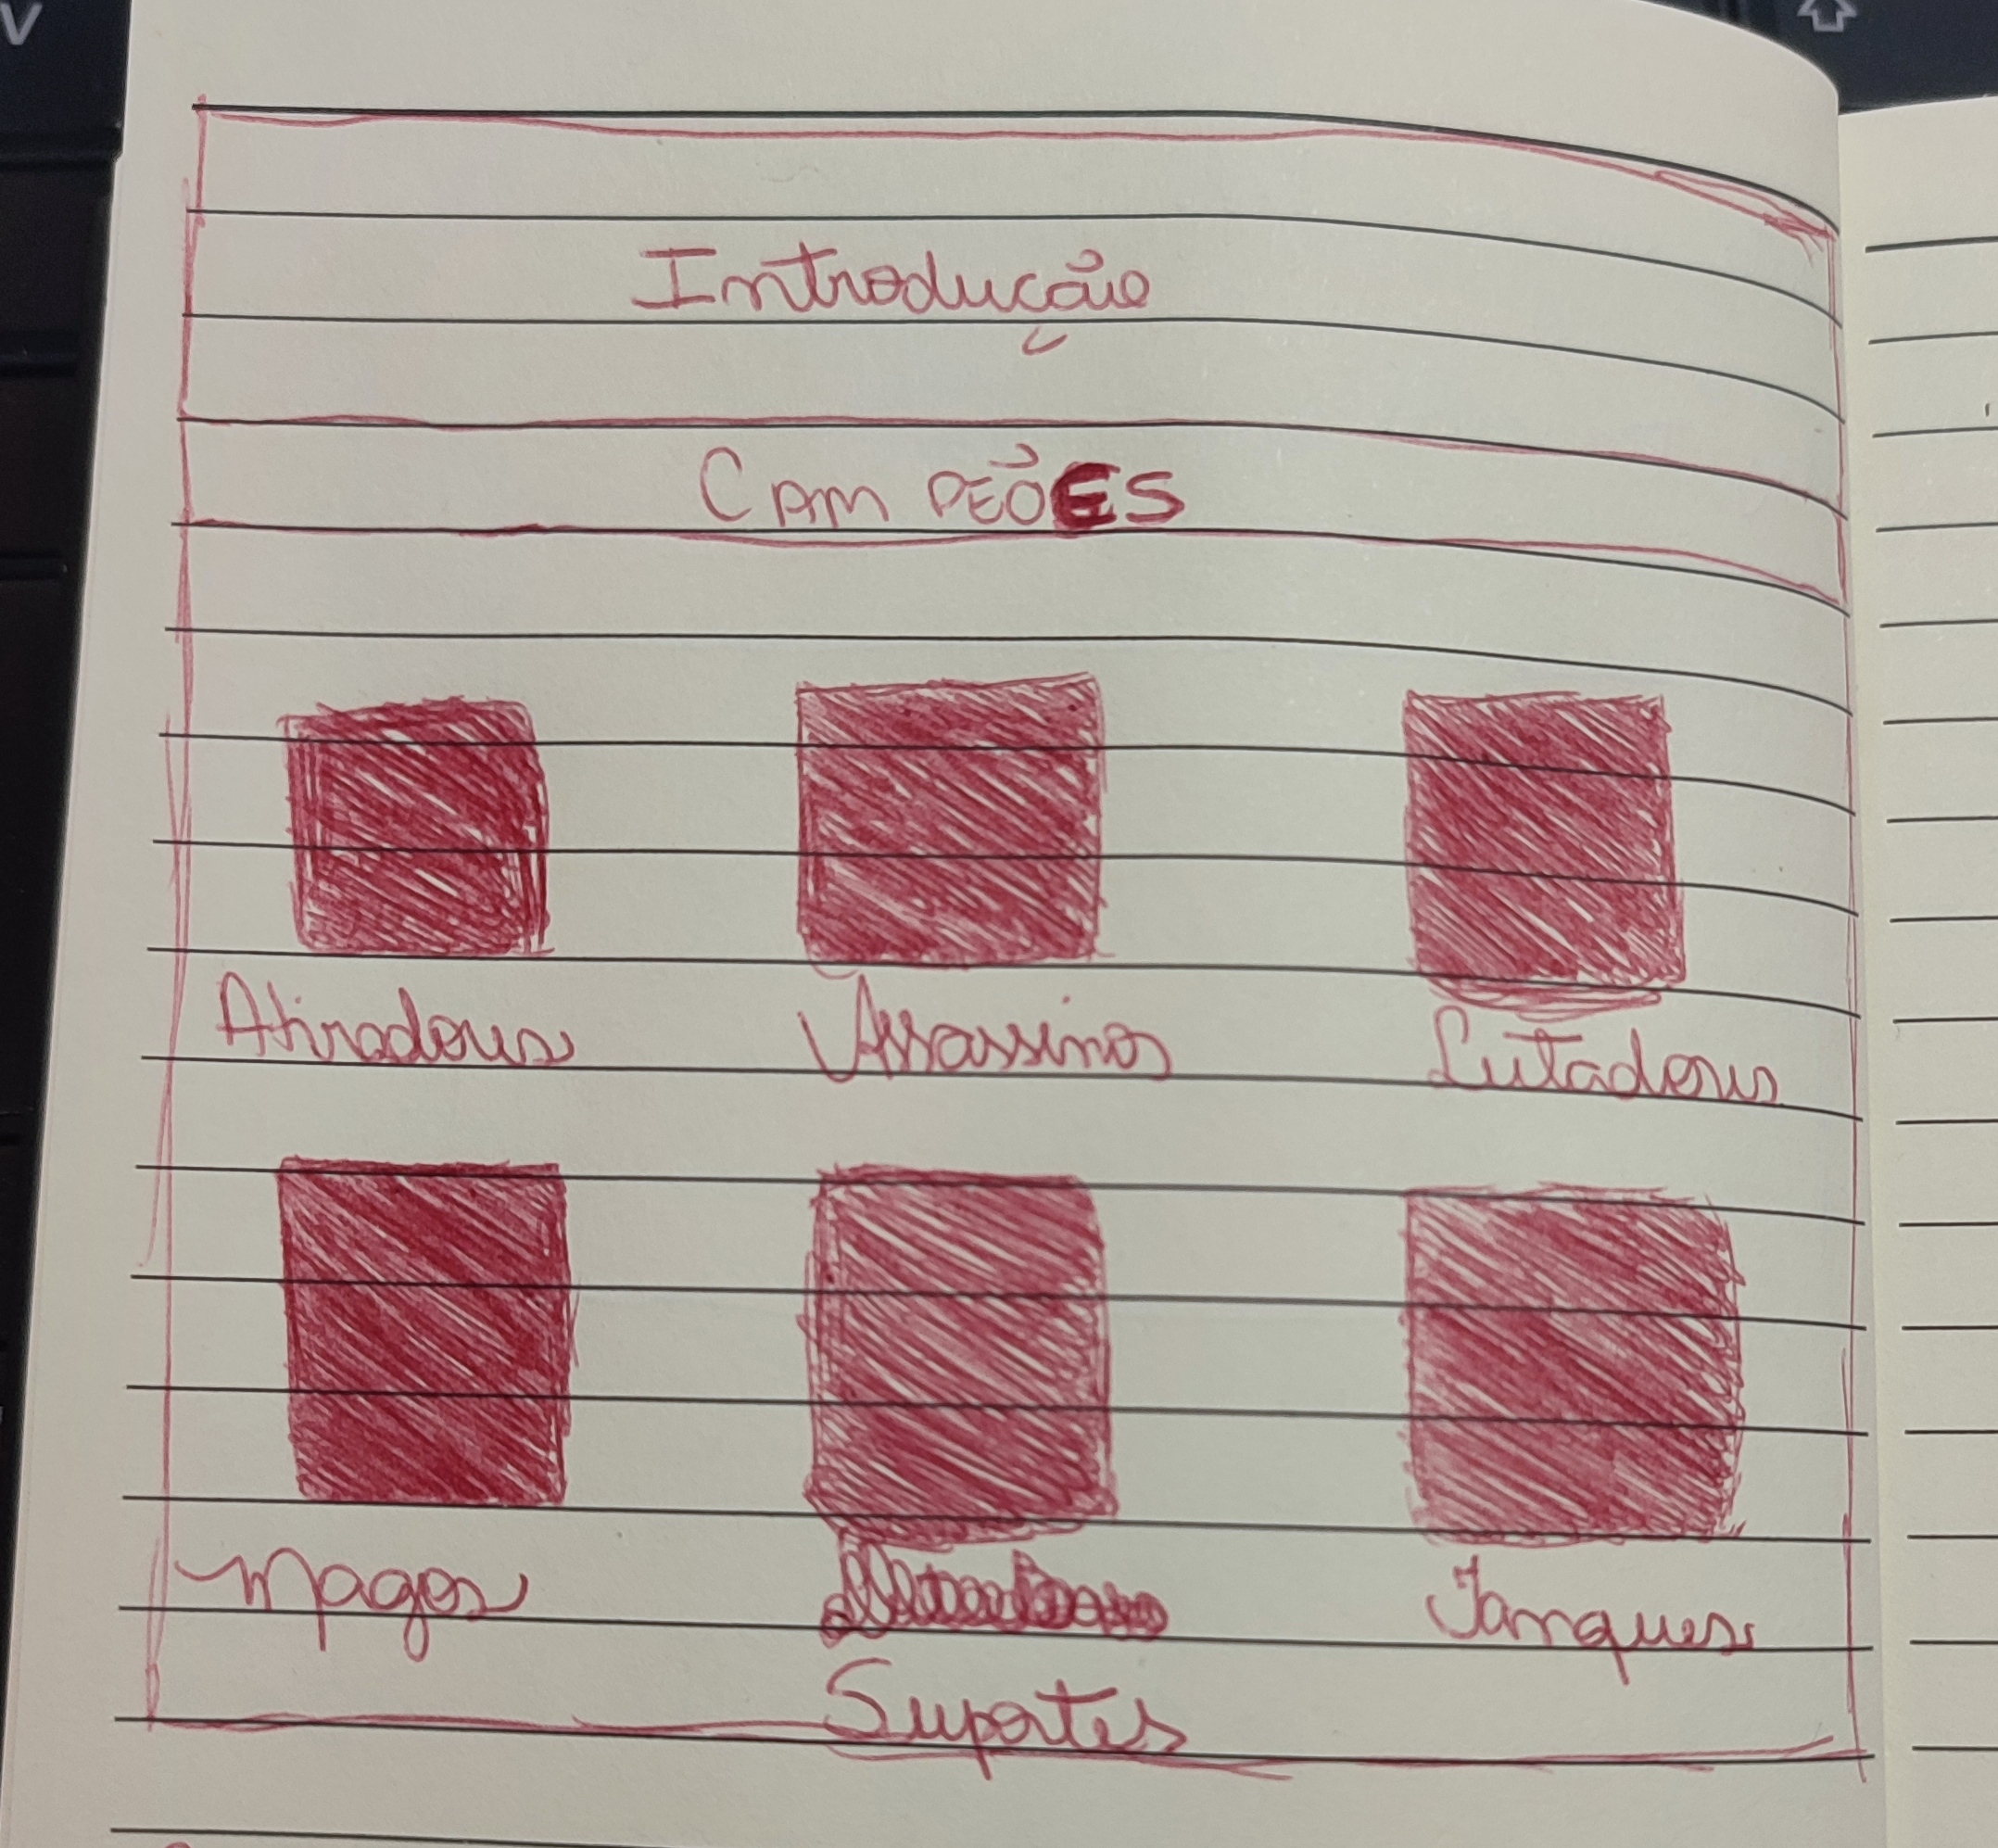 V
Introdução
CAMPEÕES
Atiradores Assassinos Lutadores
Magos Tanques
Suportes